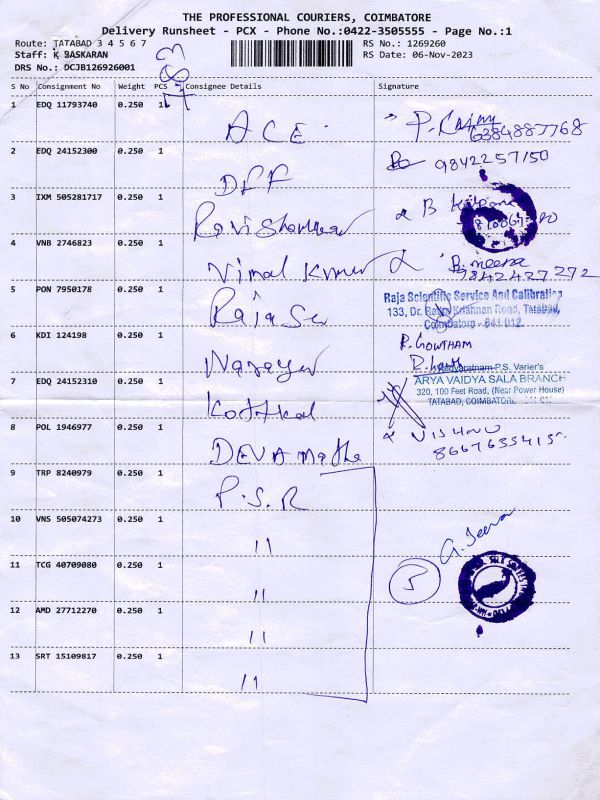 THE PROFESSIONAL COURIERS, COIMBATORE
Delivery Runsheet - PCX - Phone No.:0422-3505555 - Page No.:1
Route: TATABAD 3 4 5 6 7
RS No.: 1269260
Staff: K BASKARAN
RS Date: 06-Nov-2023
DRS No.: DCJB126926001
S No Consignment No Weight PCS Consignee Details Signature
1 EDQ 11793740 0.250 1 ACE
6384887768
2 EDQ 24152300 0.250 1 DFF 9842257150
3 IXM 505281717 0.250 1 B
4 VNB 2746823 0.250 1 Vimal Kumar B. meena
9842427272
5 PON 7950178 0.250 1 Raja Scientific Service And Calibration
133, Dr. Krishnan Road, Tatabad,
Coimbatore - 641 012.
6 KDI 124198 0.250 1 R. GOWTHAM
P.S. Varier's
7 EDQ 24152310 0.250 1 Kottkal ARYA VAIDYA SALA BRANCH
320, 100 Feet Road, (Near Power House)
TATABAD, COIMBATORE
8 POL 1946977 0.250 1 DEVA Matha VISHNU
9 TRP 8240979 0.250 1 P.S.R
10 VNS 505074273 0.250 1 11
11 TCG 40709080 0.250 1 11
5
12 AMD 27712270 0.250 1 11
13 SRT 15109817 0.250 1 11